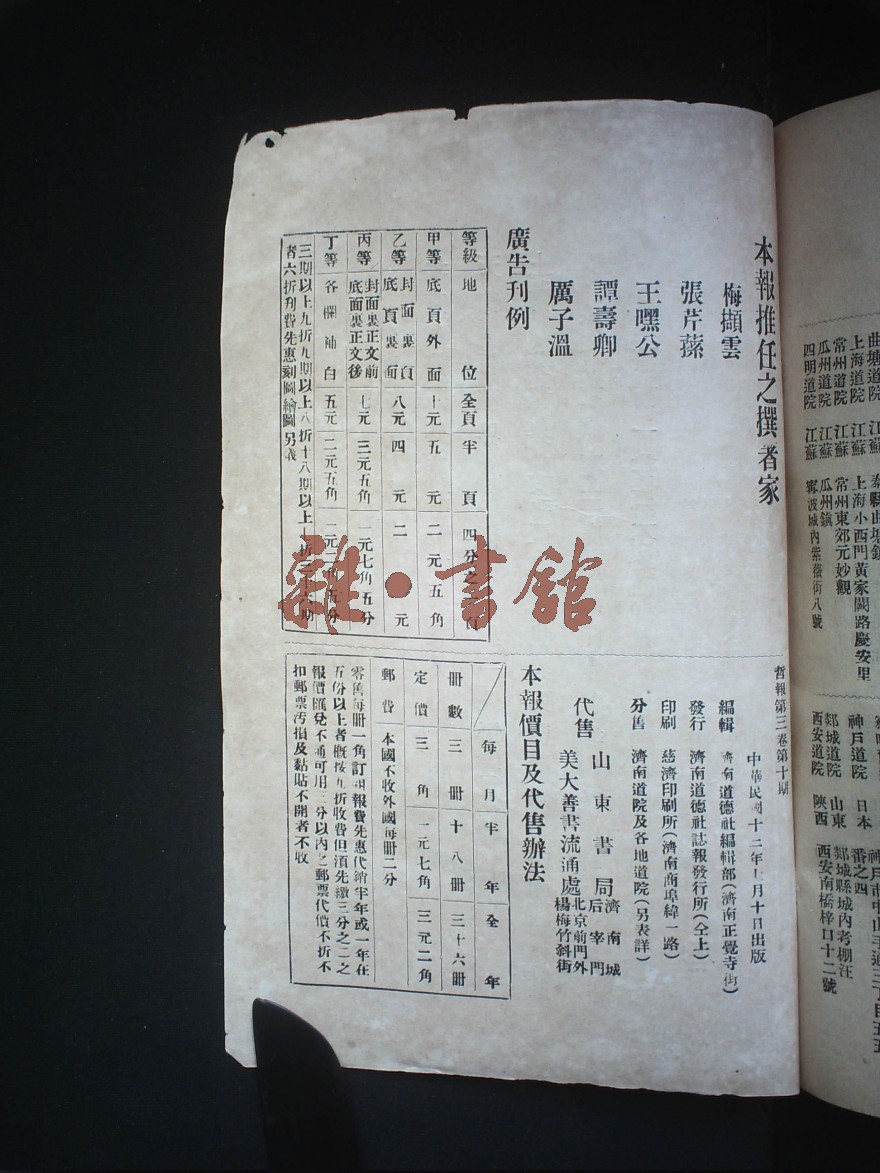 曲塘道院 江蘇 泰縣曲塘鎮
上海道院 江蘇 上海小西門黃家闕路慶安里
常州道院 江蘇 常州東郊元妙觀
瓜州道院 江蘇 瓜州鎮
四明道院 江蘇 寧波城內紫薇街八號
神戶道院 日本
番之四
郯城道院 山東 郯城縣城內考棚汪
西安道院 陝西 西安南橋梓口十二號
本報推任之撰著家
梅擷雲
張芹蓀
王嘿公
譚壽卿
厲子溫
廣告刊例
等級 地位 全頁 半頁 四分之一頁
甲等 底頁外面 十元 五元 二元五角
乙等 封面裏頁 底頁裏面 八元 四元 二元
丙等 封面裏正文前 底面裏正文後 七元 三元五角 一元七角五分
丁等 各欄補白 五元 二元五角 一元二角五分
三期以上九折九期以上八折十八期以上七折三十六期
者六折刊費先惠刻圖繪圖另議
哲報第三卷第十期
中華民國十二年 月十日出版
編輯 濟南道德社編輯部(濟南正覺寺街)
發行 濟南道德社誌報發行所(仝上)
印刷 慈濟印刷所(濟南商埠緯一路)
分售 濟南道院及各地道院(另表詳)
代售 山東書局 濟南城后宰門
美大善書流通處 北京前門外楊梅竹斜街
本報價目及代售辦法
每月 半年 全年
冊數 三冊 十八冊 三十六冊
定價 三角 一元七角 三元二角
郵費 本國不收外國每冊二分
零售每冊一角訂報報費先惠代銷半年或一年在
五份以上者概按九折收費但須先繳三分之二之
報價匯兌不通可用二分以內之郵票代價不折不
扣郵票污損及黏貼不開者不收
雜·書館